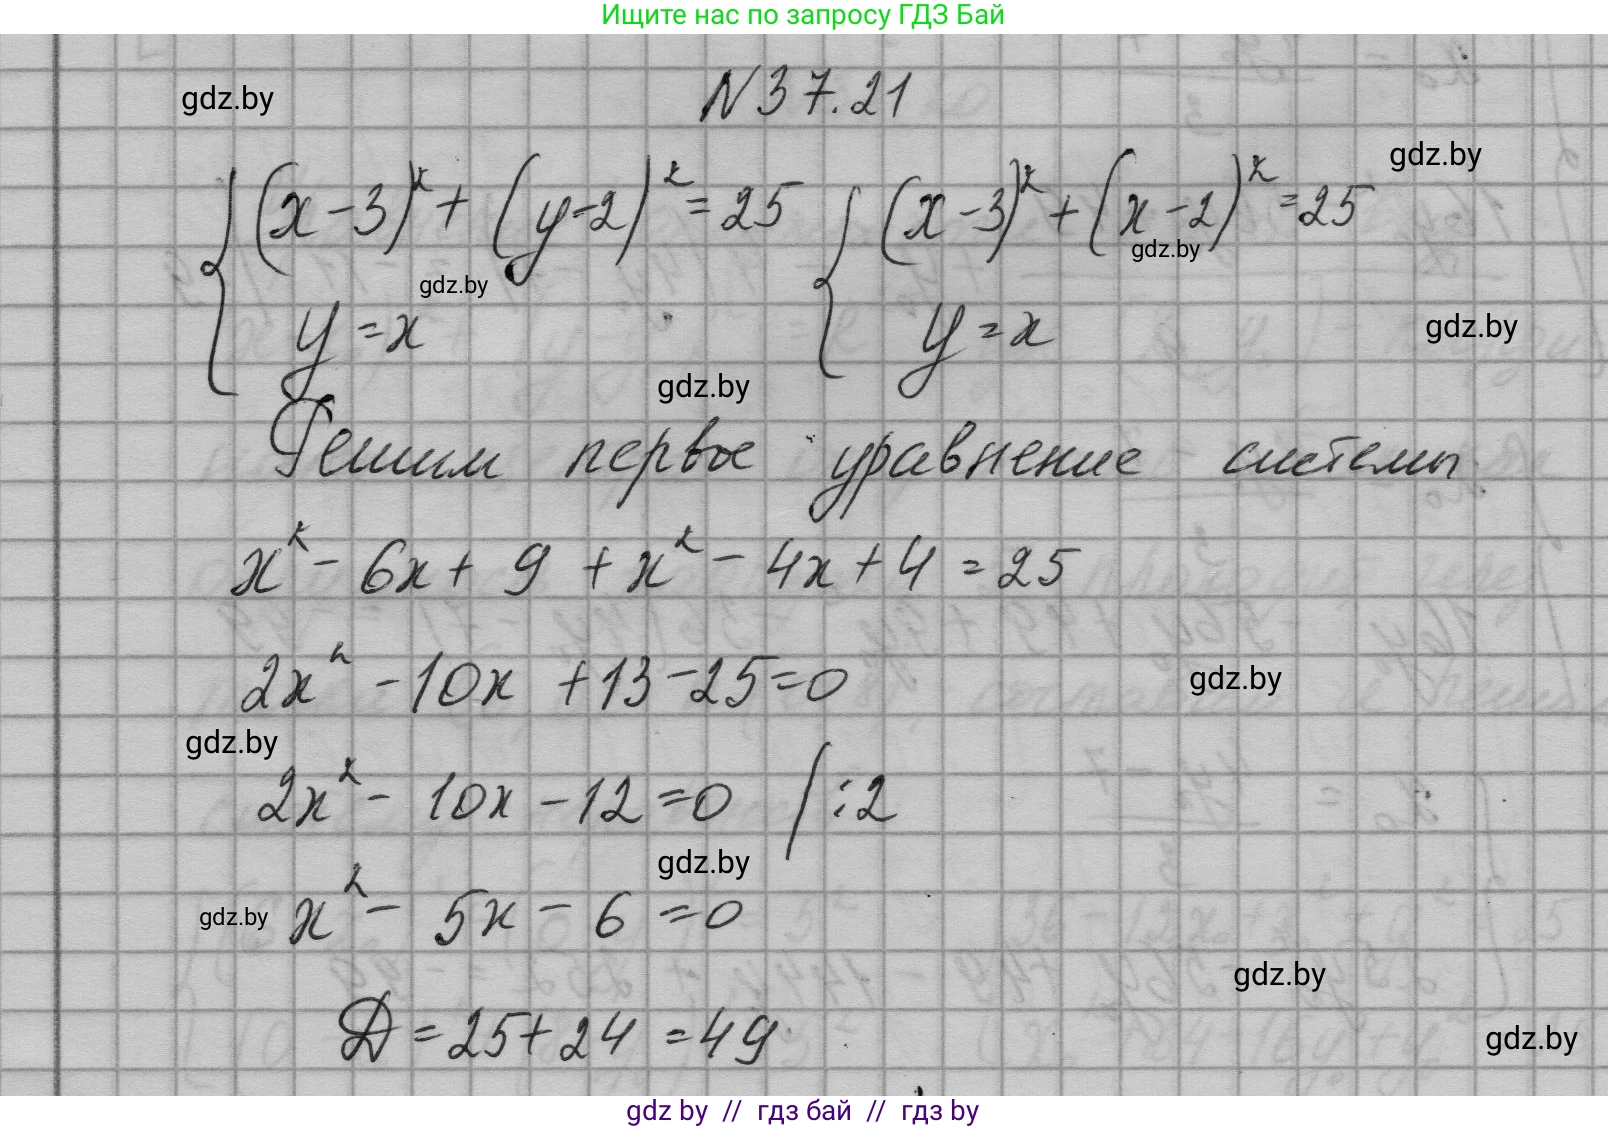 Ищите нас по запросу ГДЗ Бай
N 37.21
gdz.by
gdz.by
{ (x-3)² + (y-2)² = 25 { (x-3)² + (x-2)² = 25
gdz.by
gdz.by
y = x y = x
gdz.by
gdz.by
Решим первое уравнение системы
x² - 6x + 9 + x² - 4x + 4 = 25
2x² - 10x + 13 - 25 = 0
gdz.by
gdz.by
2x² - 10x - 12 = 0 | :2
gdz.by
x² - 5x - 6 = 0
gdz.by
gdz.by
D = 25 + 24 = 49
gdz.by
gdz by // гдз бай // гдз by